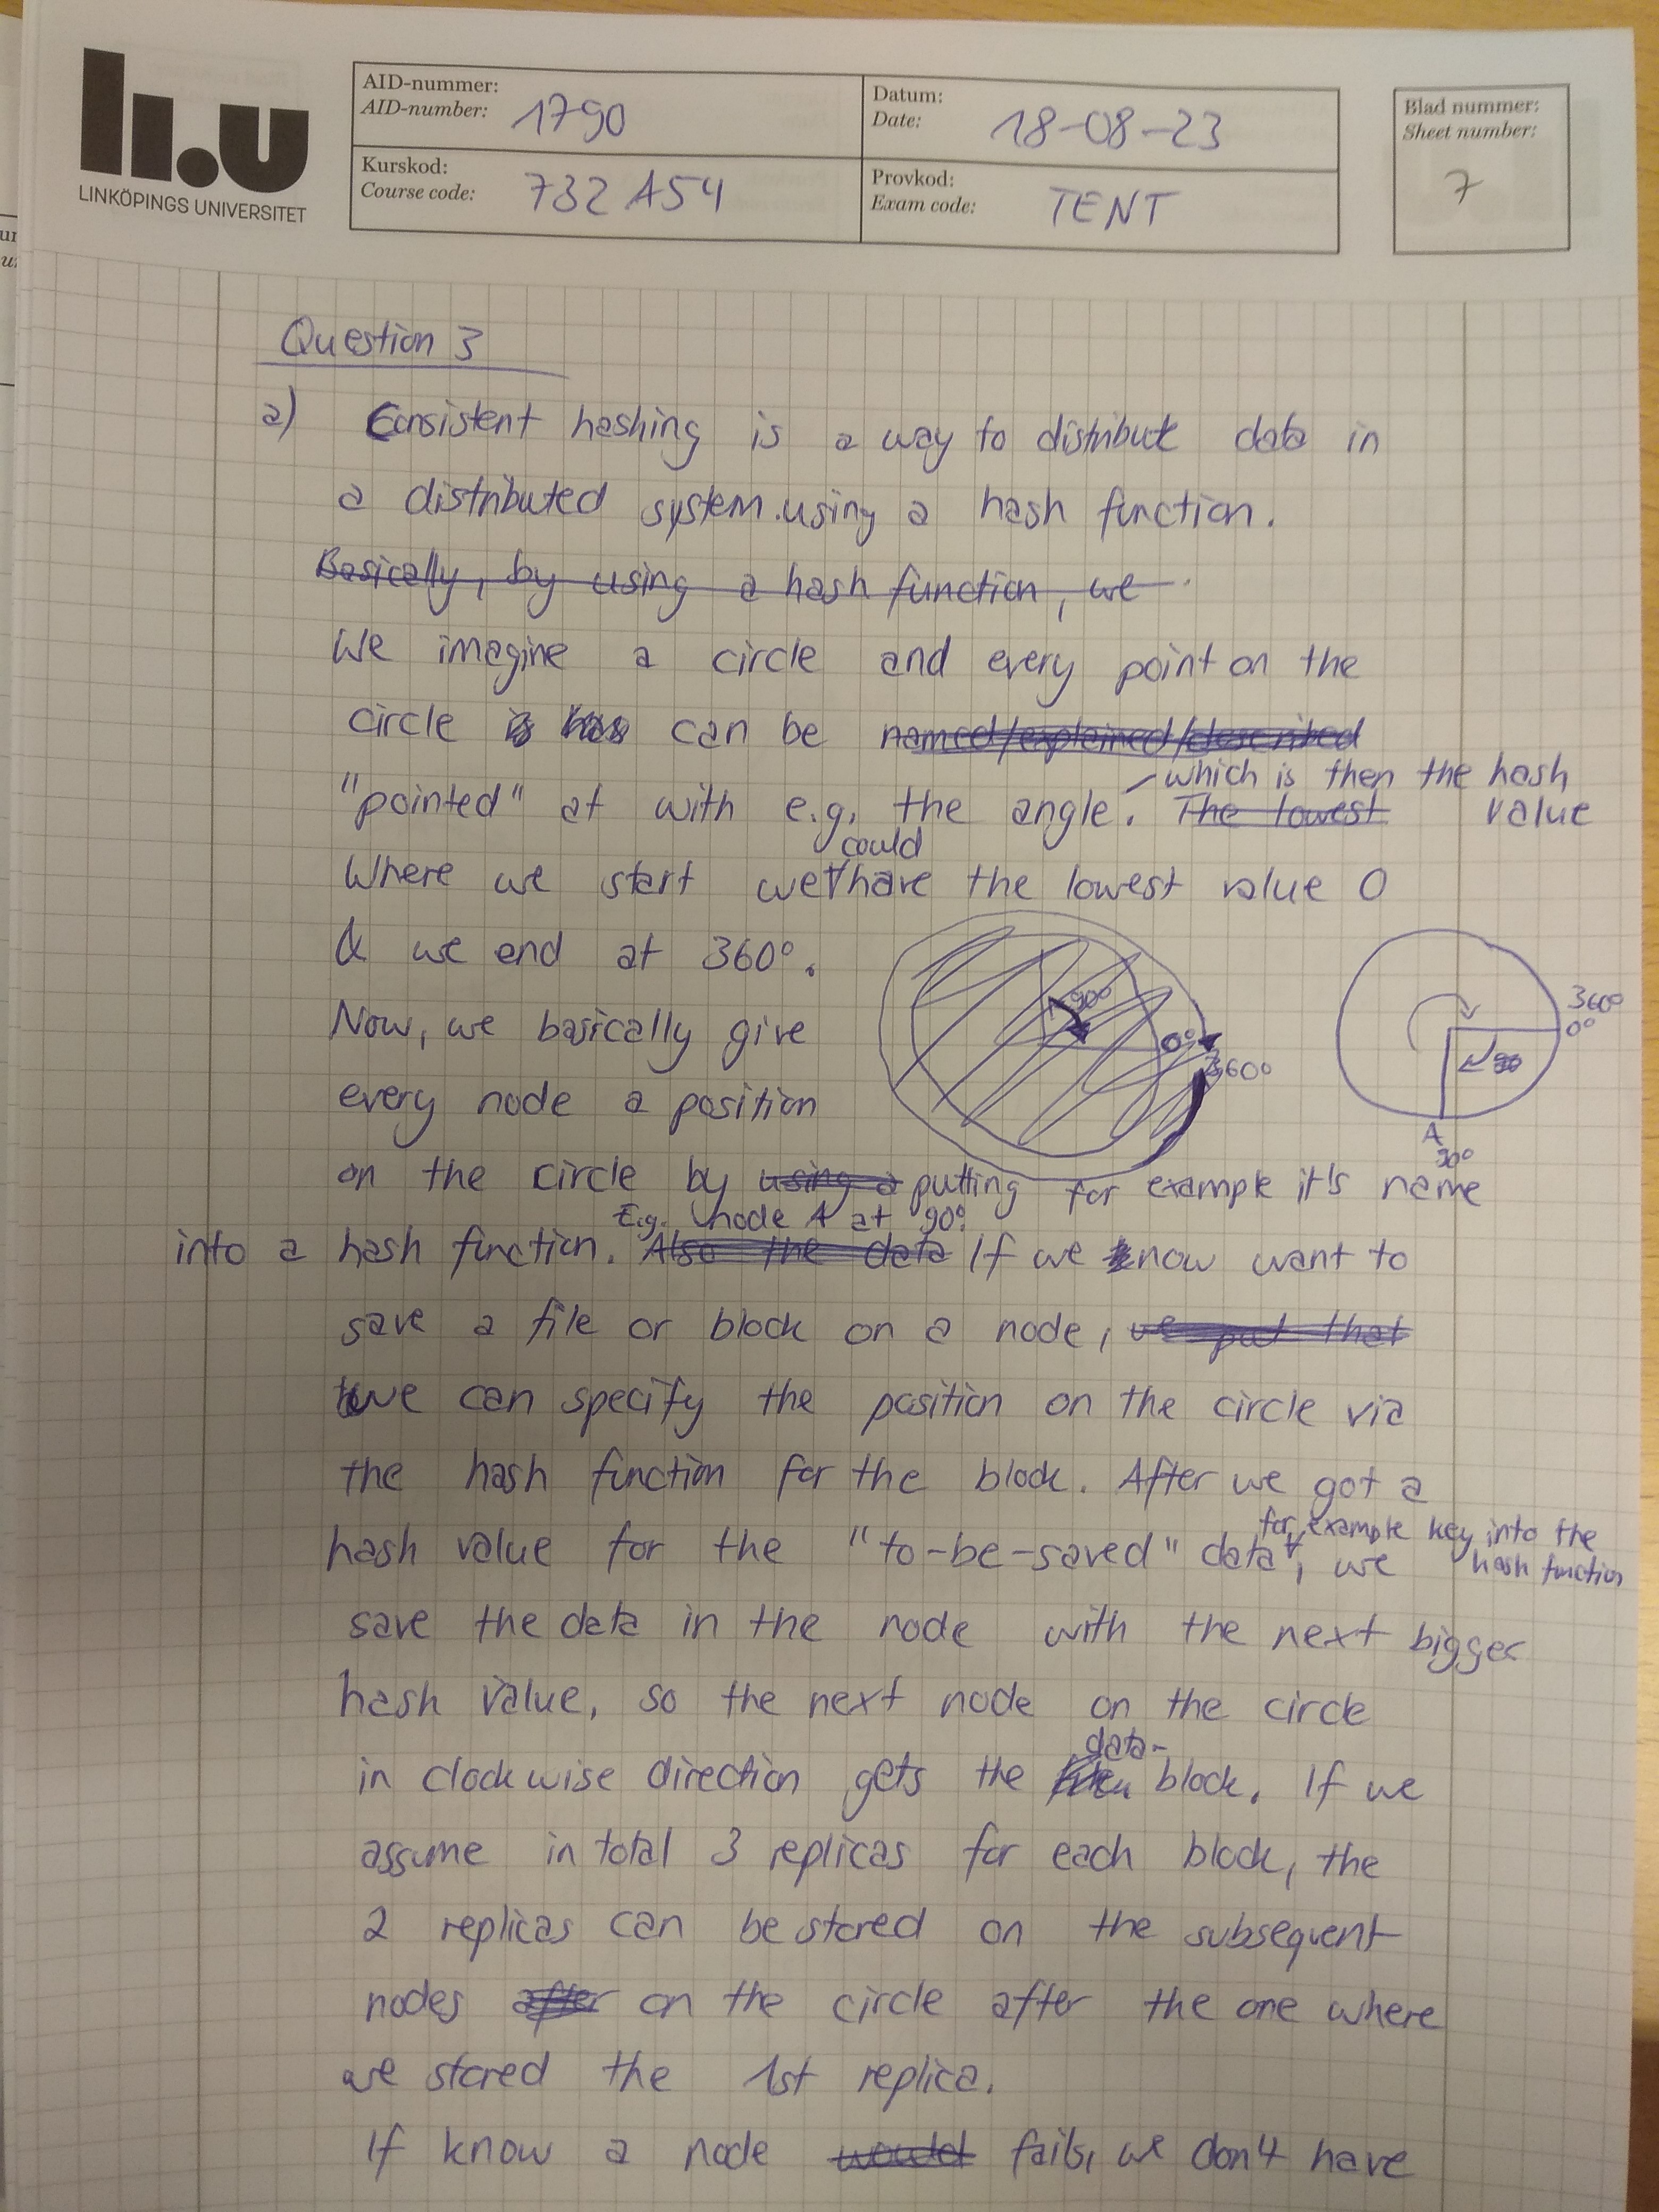 li.u
LINKÖPINGS UNIVERSITET
AID-nummer:
AID-number: 1790
Datum:
Date: 18-08-23
Kurskod:
Course code: 732A54
Provkod:
Exam code: TENT
Blad nummer:
Sheet number:
7
Question 3
a) Consistent hashing is a way to distribute data in
a distributed system using a hash function.
Basically, by using a hash function, we
We imagine a circle and every point on the
circle is has can be named/explained/described
which is then the hash
"pointed" at with e.g. the angle. The lowest value
could
Where we start we have the lowest value 0
& we end at 360°.
90°
0°
360°
360°
0°
90
A
90°
Now, we basically give
every node a position
on the circle by using a putting for example it's name
E.g. node A at 90°
into a hash function. Also the data If we now want to
save a file or block on a node, we put that
we can specify the position on the circle via
the hash function for the block. After we got a
for example key into the
hash value for the "to-be-saved" data, we hash function
save the data in the node with the next bigger
hash value, so the next node on the circle
data-
in clockwise direction gets the block. If we
assume in total 3 replicas for each block, the
2 replicas can be stored on the subsequent
nodes after on the circle after the one where
we stored the 1st replica.
If know a node would fails, we don't have